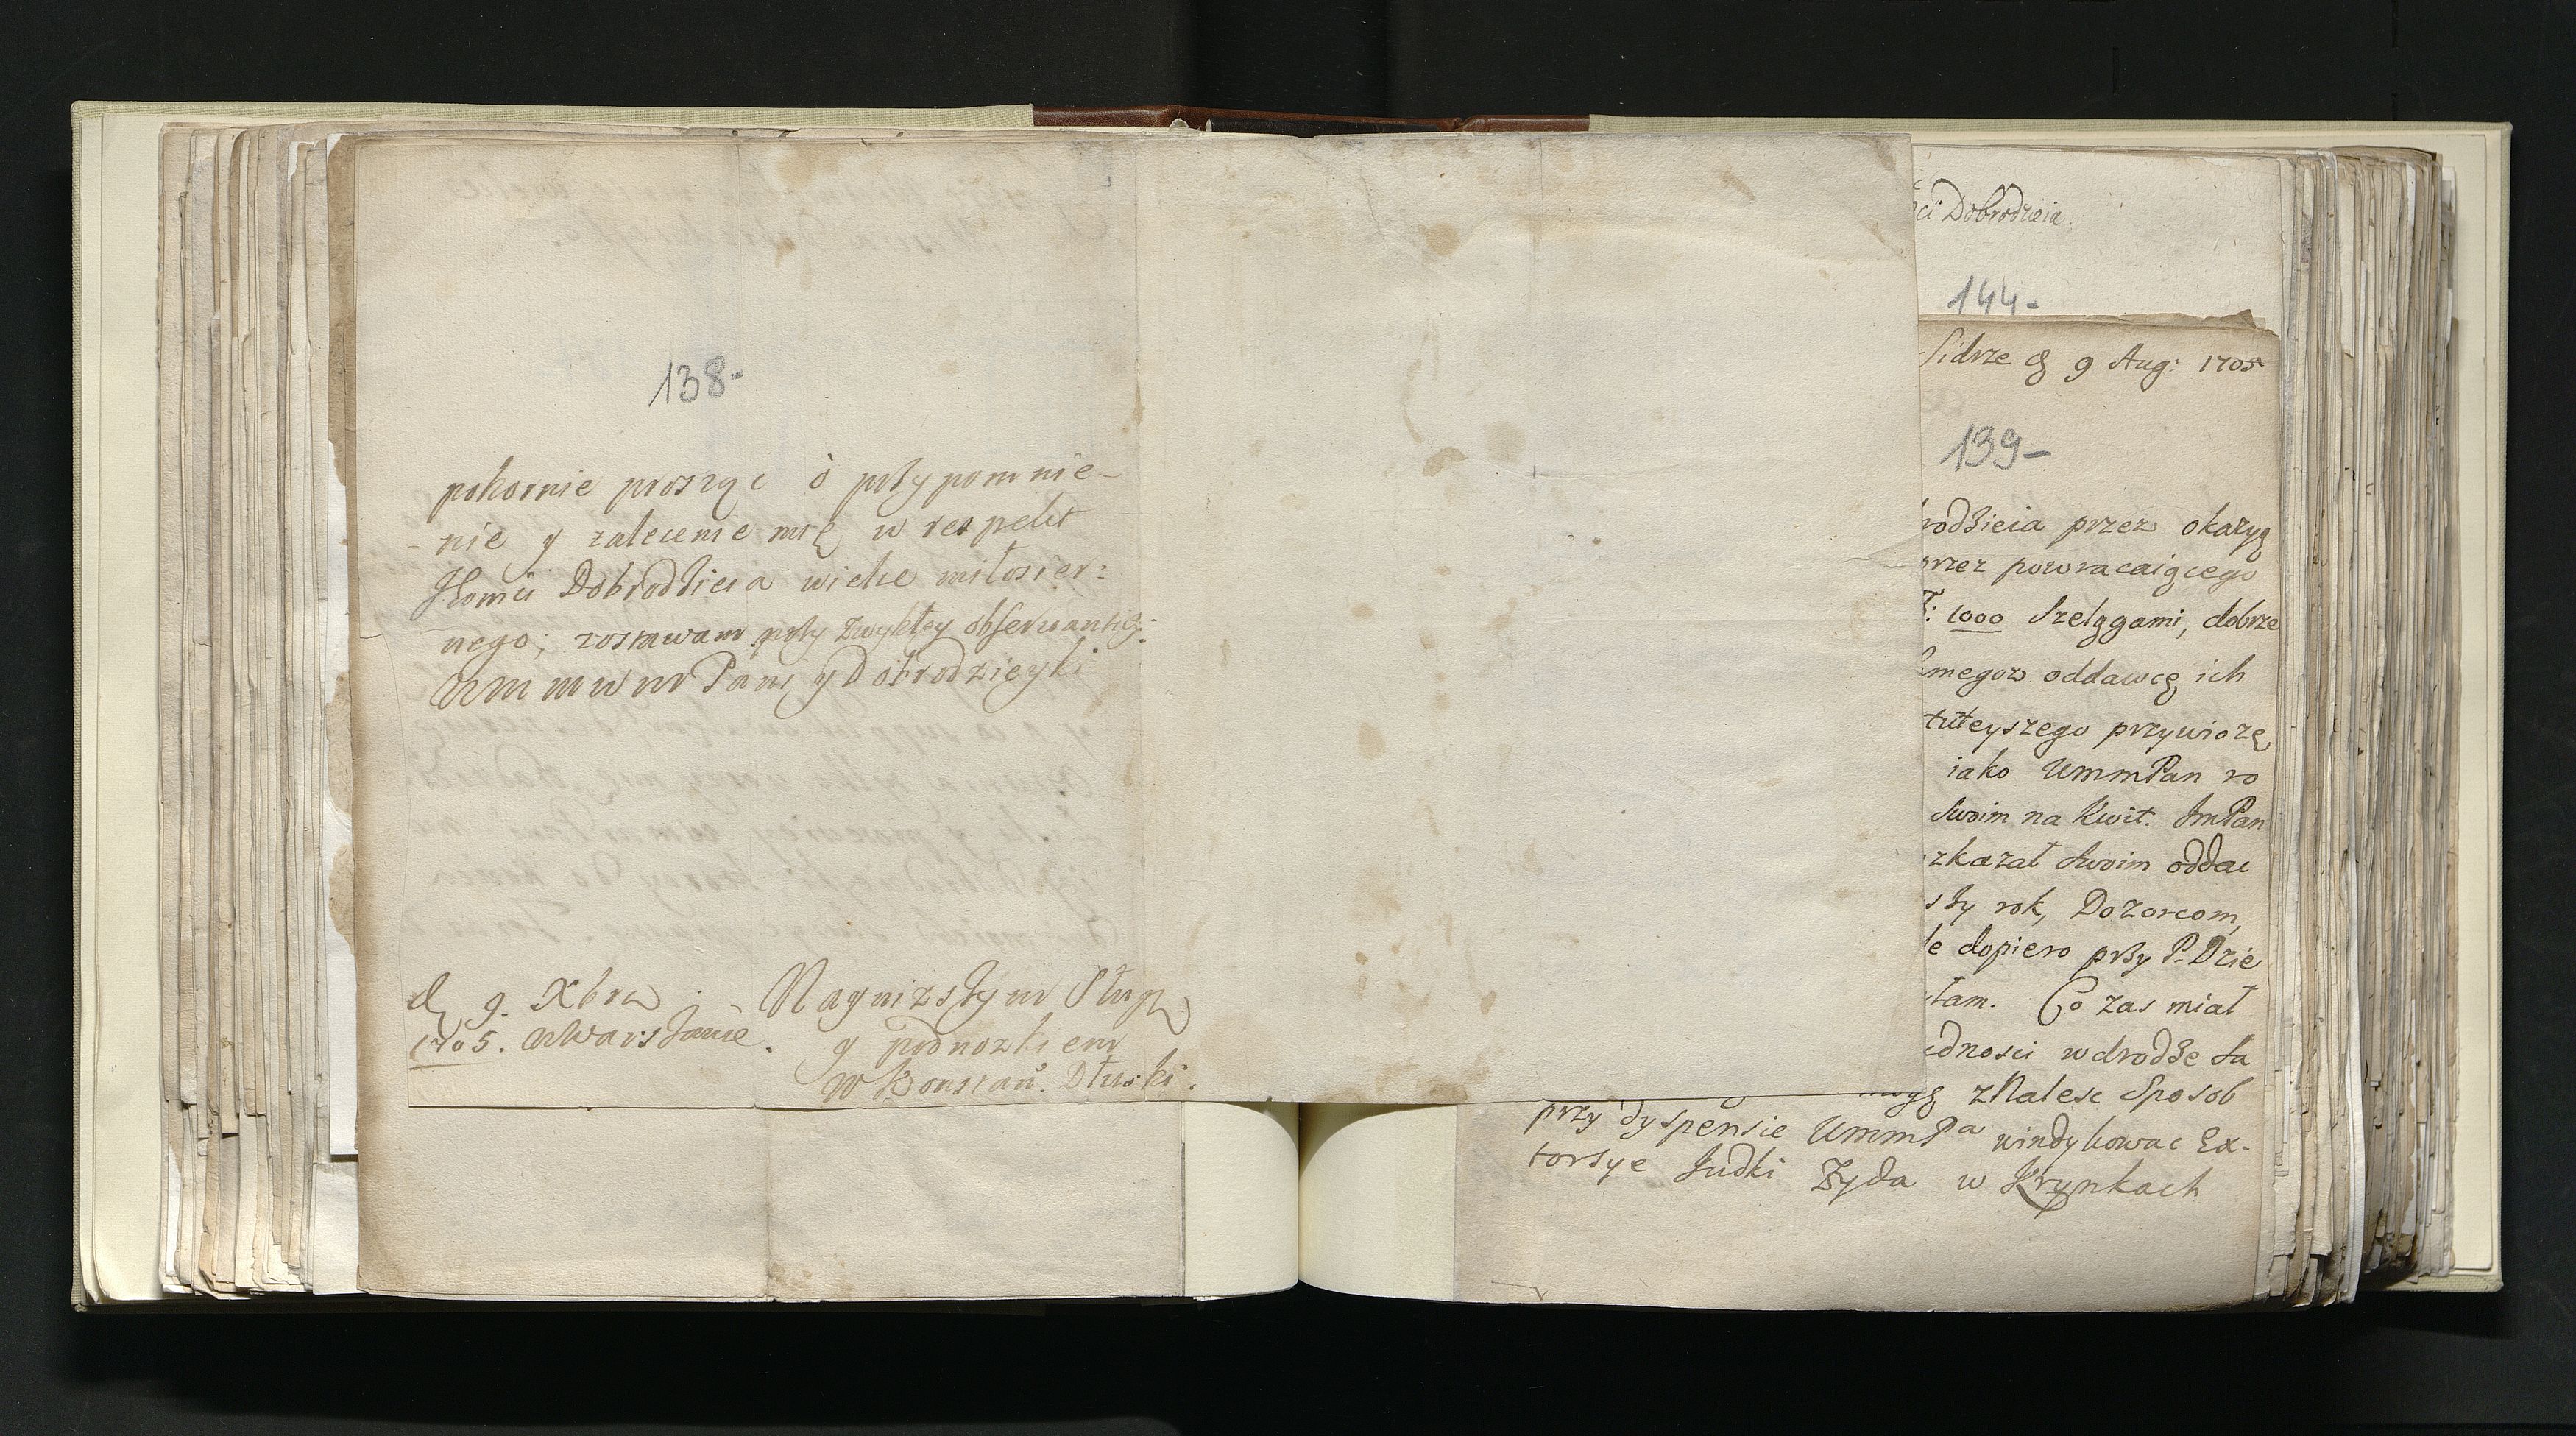 138-
pokornie prosząc ò przypomnie-
-nie y zalecenie mię w respekt
JEomći Dobrodzieia wielce miłosier:
nego; zostawam przy zwykłey obserwantiey
WMMWM Pani y Dobrodzieyki
d. 9. Xbra
1705. wWarszawie.
Nayniższym Sługą
y podnożkiem
W Konstan. Dłuski.
ci Dobrodzieia.
144-
Sidrze d 9 Aug: 1705
139-
rodzieia przez okazyą
przez powracaiącego
: 1000 Szelągami, dobrze
megoz oddawcę ich
tuteyszego przywiozę
iako UmmPan ro
Swoim na Kwit. ImPan
zkazał Swoim oddac
rok, Dozorcom,
le dopiero przy P. Dzie
tam. Co zas miał
dnosci wdrodze
mogę zNalesc Sposob
przy dyspensie UmmPa windykowac Ex-
torsye Judki Żyda w Krynkach